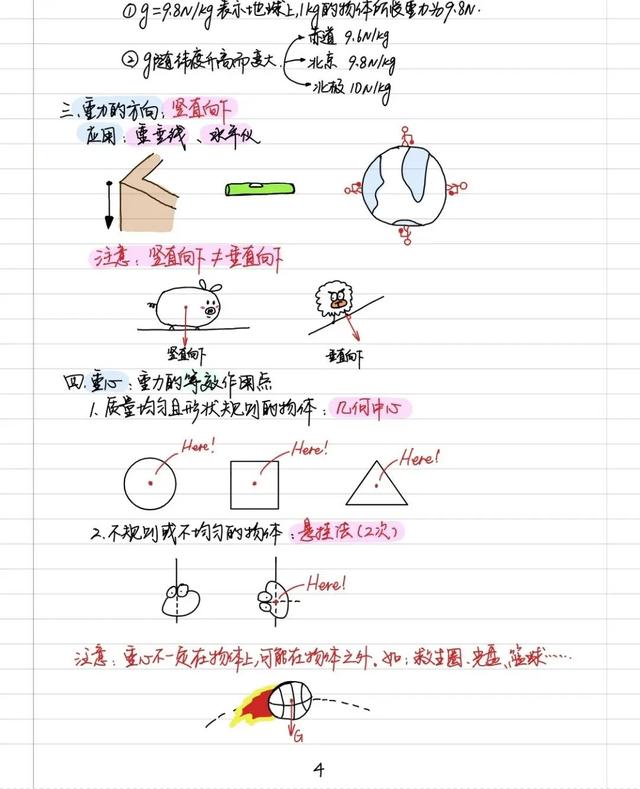 ①g=9.8N/kg表示地球上,1kg的物体所受重力为9.8N.
赤道 9.6N/kg
②g随纬度升高而变大 北京 9.8N/kg
北极 10N/kg
三.重力的方向:竖直向下
应用:重垂线、水平仪
注意:竖直向下≠垂直向下
竖直向下 垂直向下
四.重心:重力的等效作用点
1.质量均匀且形状规则的物体:几何中心
Here! Here! Here!
2.不规则或不均匀的物体:悬挂法(2次)
Here!
注意:重心不一定在物体上,可能在物体之外.如:救生圈、光盘、篮球……
G
4